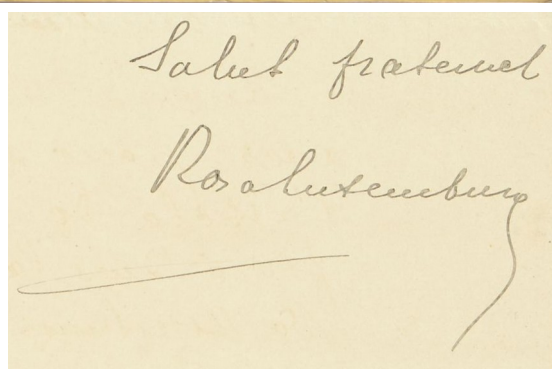 Salut fraternel
Rosa Luxemburg